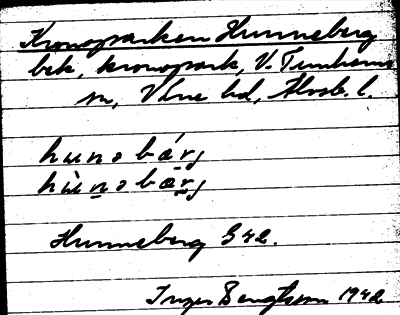 Kronoparken Hunneberg
bek, kronopark, V. Tunhems
sn, Väne hd, Älvsb. l.
hunəbærj
hùnəbærj
Hunneberg G42.
Inger Bengtsson 1942